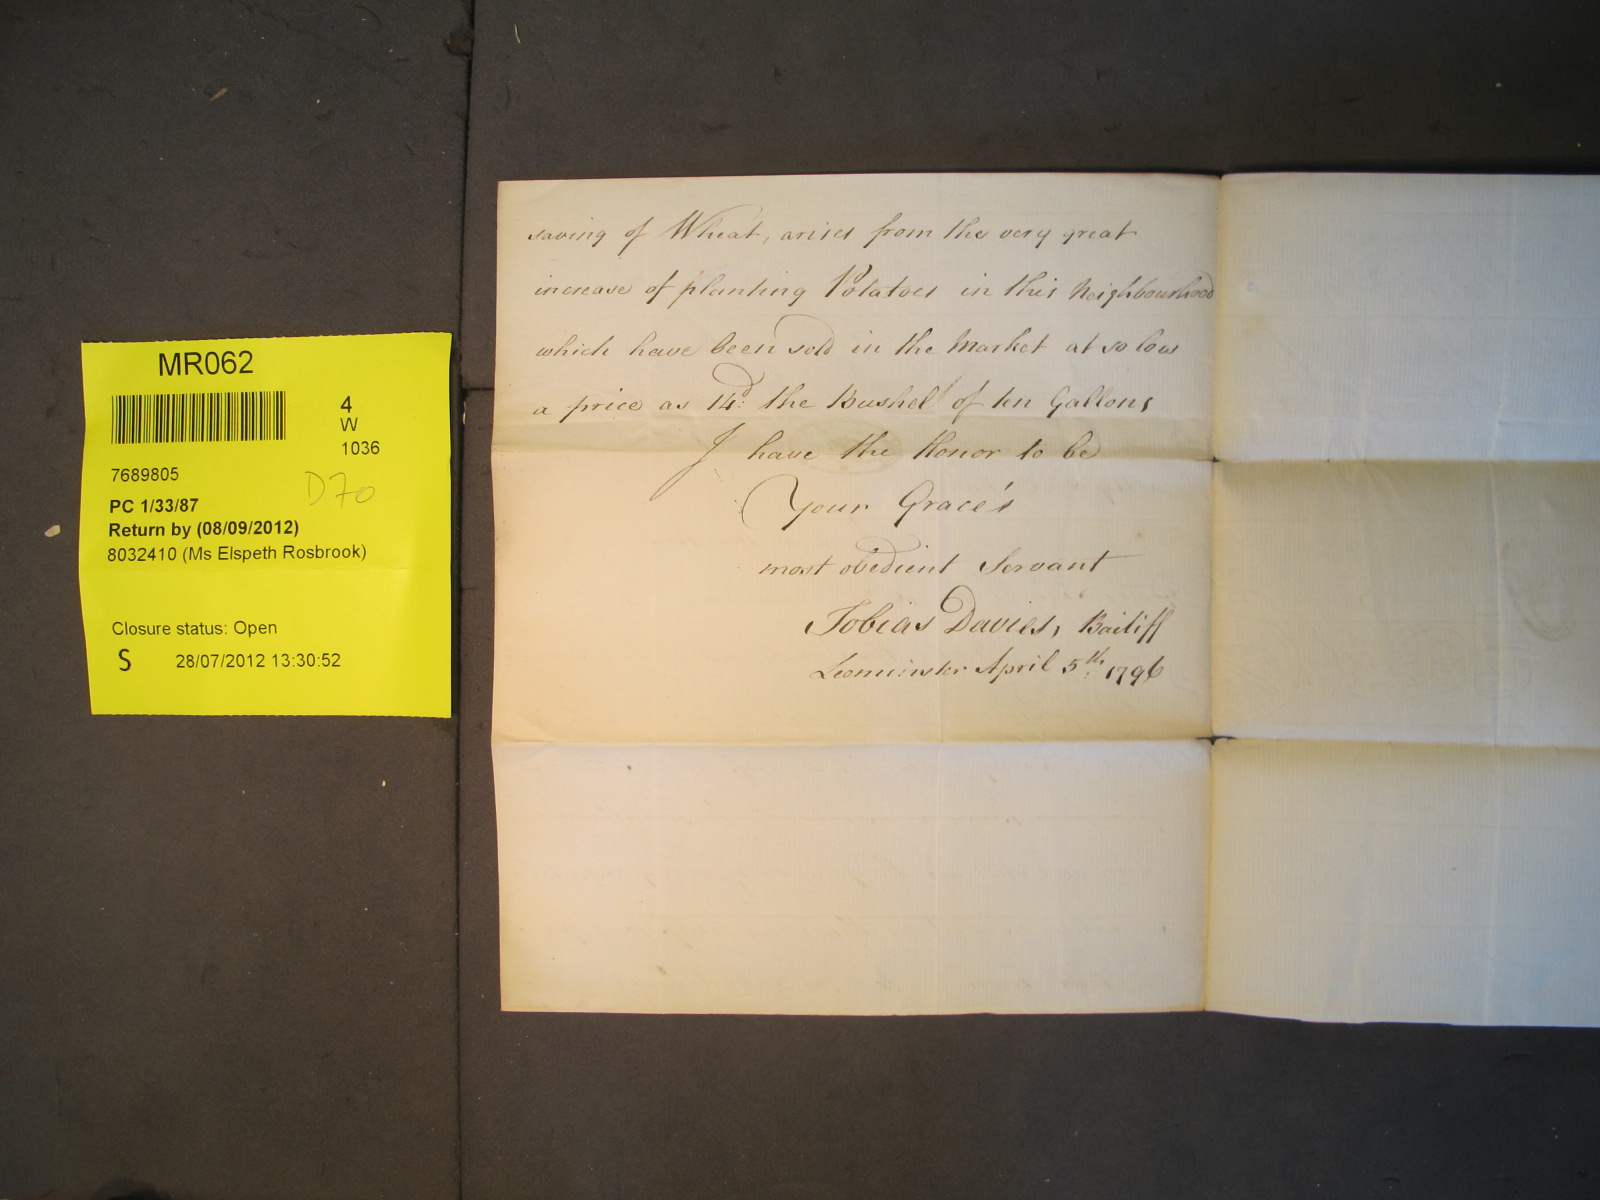 MR062
4
W
1036
7689805
D70
PC 1/33/87
Return by (08/09/2012)
8032410 (Ms Elspeth Rosbrook)
Closure status: Open
S 28/07/2012 13:30:52
saving of Wheat, arises from the very great
increase of planting Potatoes in this Neighbourhood
which have been sold in the Market at so low
a price as 14d. the Bushel of ten Gallons
I have the Honor to be
Your Grace's
most obedient Servant
Tobias Davies, Bailiff
Leominster April 5th. 1796